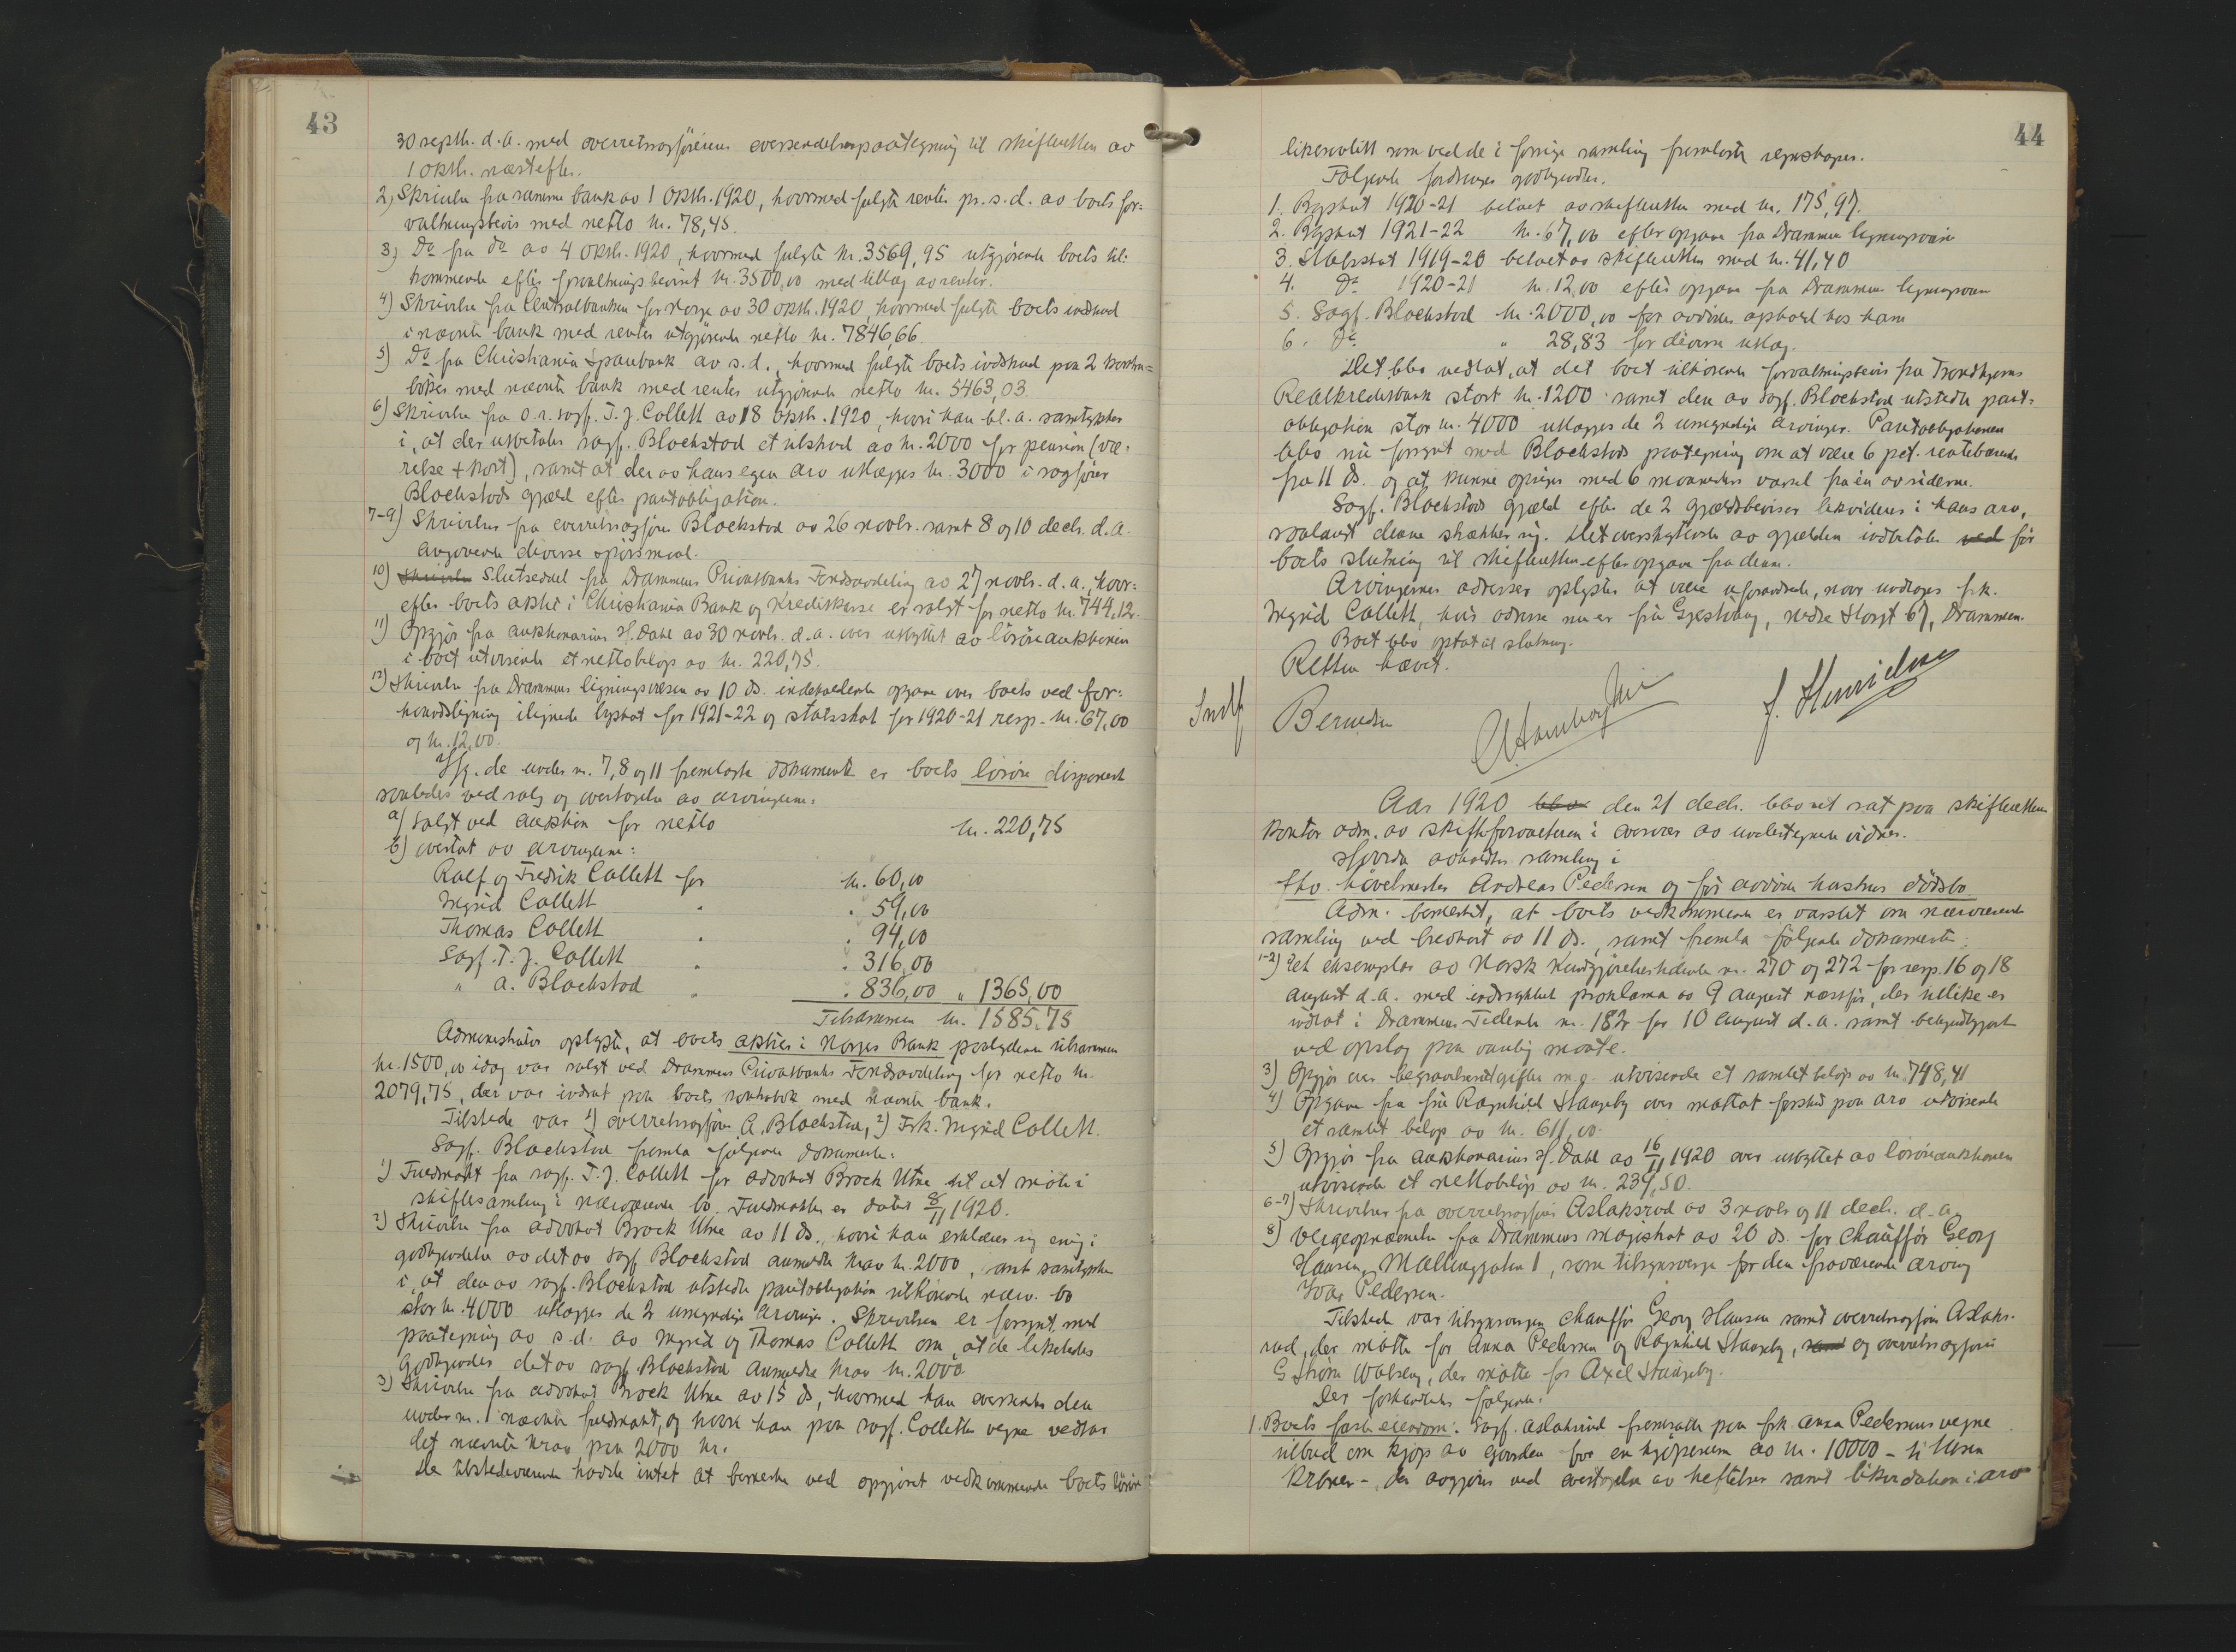 43
30 septbr. d.a. med overretssagförerens oversendelsespaategning til skifteretten av
1 oktbr. næstefter.
2) Skrivelse fra samme bank av 1 oktbr. 1920, hvormed fulgte renter pr. s.d. av boets for-
valtningsbevis med netto kr. 78,45.
3) Do fra do av 4 oktbr. 1920, hvormed fulgte kr. 3569,95 utgjörende boets til-
kommende efter forvaltningsbeviset kr. 3500,00 med tillæg av renter.
4) Skrivelse fra Centralbanken for Norge av 30 oktbr. 1920 hvormed fulgte boets indskud
i nævnte bank med renter utgjörende netto kr. 7846,66.
5) Do fra Christiania Sparebank av s.d., hvormed fulgte boets indskud paa 2 kontra-
böker med nævnte bank med renter utgjörende netto kr. 5463,03.
6) Skrivelse fra o.r. sagf. T. J. Collett av 18 oktbr. 1920, hvori han bl.a. samtykker
i, at der utbetales sagf. Blockstad et tilskud av kr. 2000 for pension (væ-
relse + kost), samt at der av hans egen arv utlægges kr. 3000 i sagförer
Blockstads gjæld efter pantobligation.
7-9) Skrivelser fra overretssagförer Blockstad av 26 novbr. samt 8 og 10 decbr. d.a.
angaaende diverse spörsmaal.
10) Skrivelse Slutseddel fra Drammens Privatbanks Fondsavdeling av 27 novbr. d.a., hvor-
efter boets aktie i Christiania Bank og Kreditkasse er solgt for netto kr. 744,12.
11) Opgjör fra auktionarius H. Dahl av 30 novbr. d.a. over utbyttet av lösöreauktionen
i boet utvisende et nettobelöp av kr. 220,75.
12) Skrivelse fra Drammens ligningsvæsen av 10 ds. indeholdende opgave over boets ved for-
haandsligning ilignede byskat for 1921-22 og statsskat for 1920-21 resp. kr. 67,00
og kr. 12,00.
Ifg. de under nr. 7, 8 og 11 fremlagte dokumenter er boets lösöre disponert
saaledes ved salg og overtagelse av arvingerne:
a) solgt ved auktion for netto kr. 220,75
b) overtat av arvingerne:
Ralf og Fredrik Collett for kr. 60,00
Ingrid Collett " " 59,00
Thomas Collett " " 94,00
Sagf. T. J. Collett " " 316,00
" A. Blockstad " " 836,00 " 1365,00
Tilsammen kr. 1585,75
Administrator oplyste, at boets aktier i Norges Bank paalydende tilsammen
kr. 1500,00 idag var solgt ved Drammens Privatbanks Fondsavdeling for netto kr.
2079,75, der var indsat paa boets kontrabok med nævnte bank.
Tilstede var 1) overretssagförer A. Blockstad, 2) Frk. Ingrid Collett.
Sagf. Blockstad fremla fölgende dokumenter:
1) Fuldmakt fra sagf. T. J. Collett for advokat Brock Utne til at möte i
skiftesamling i nærværende bo. Fuldmakten er datert 8/11 1920.
2) Skrivelse fra advokat Brock Utne av 11 ds., hvori han erklærer sig enig i
godkjendelse av det av sagf. Blockstad anmeldte krav kr. 2000, samt samtykker
i, at den av sagf. Blockstad utstedte pantobligation tilhörende nærv. bo
stor kr. 4000 utlægges de 2 umyndige arvinger. Skrivelsen er forsynt med
paategning av s.d. av Ingrid og Thomas Collett om, at de likeledes
godkjender det av sagf. Blockstad anmeldte krav kr. 2000
3) Skrivelse fra advokat Brock Utne av 15 ds, hvormed han oversender den
under nr. 1 nævnte fuldmakt, og hvori han paa sagf. Colletts vegne vedtar
det nævnte krav paa 2000 kr.
De tilstedeværende hadde intet at bemerke ved opgjöret vedkommende boets lösöre
44
likesaalitt som ved de i forrige samling fremlagte regnskaper.
Fölgende fordringer godkjendtes.
1. Byskat 1920-21 betalt av skifteretten med kr. 175,97.
2. Byskat 1921-22 kr. 67,00 efter opgave fra Drammens ligningsvæsen
3. Statsskat 1919-20 betalt av skifteretten med kr. 41,40
4. Do 1920-21 kr. 12,00 efter opgave fra Drammens ligningsvæsen
5. Sagf. Blockstad kr. 2000,00 for avdödes ophold hos ham
6. Do " 28,83 for diverse utlæg.
Det blev vedtat, at det boet tilhörende forvaltningsbevis fra Trondhjems
Realkreditbank stort kr. 1200 samt den av sagf. Blockstad utstedte pant-
obligation stor kr. 4000 utlægges de 2 umyndige arvinger. Pantobligationen
blev nu forsynt med Blockstads paategning om at være 6 pct. rentebærende
fra 11 ds. og at kunne opsiges med 6 maaneders varsel fra en av siderne.
Sagf. Blockstads gjæld efter de 2 gjældsbeviser likvideres i hans arv,
saalangt denne strækker sig. Det overskytende av gjælden indbetales ved för
boets slutning til skifteretten efter opgave fra denne.
Arvingernes adresser oplystes at være uforandrede, naar undtages frk.
Ingrid Collett, hvis adresse nu er fru Gjestvang, nedre Storgt 67, Drammen.
Boet blev optat til slutning.
Retten hævet.
Indf
Berntsen
J. Henriksen
Aar 1920 blev den 21 decbr. blev ret sat paa skifterettens
kontor adm. av skifteforvalteren i overvær av undertegnede vidner.
Hvorda avholdtes samling i
fhv. hövelmester Andreas Pedersen og för avdöde hustrus dödsbo
Adm. bemerket, at boets vedkommende er varslet om nærværende
samling ved brevkort av 11 ds., samt fremla fölgende dokumenter:
1-2) Et eksemplar av Norsk Kundgjörelsestidende nr. 270 og 272 for resp. 16 og 18
august d.a. med indrykket proklama av 9 august næstför, der tillike er
indtat i Drammens Tidende nr. 182 for 10 august d.a. samt bekjendtgjort
ved opslag paa vanlig maate.
3) Opgjör over begravelsesutgifter m.g. utvisende et samlet belöp av kr. 748,41
4) Opgave fra fru Ragnhild Stangeby over mottat forskud paa arv utvisende
et samlet belöp av kr. 611,00.
5) Opgjör fra auktionarius H. Dahl av 16/11 1920 over utbyttet av lösöreauktionen
utvisende et nettobelöp av kr. 239,50.
6-7) Skrivelser fra overretssagförer Aslaksrud av 3 novbr og 11 decbr. d.a.
8) Vergeopnævnelse fra Drammens magistrat av 20 ds. for chaufför Georg
Hansen, Mallinggaten 1, som tilsynsverge for den fraværende arving
Ivar Pedersen.
Tilstede var tilsynsvergen chaufför Georg Hansen samt overretssagförer Aslaks-
rud, der mötte for Anna Pedersen og Ragnhild Stangeby, samt og overretssagförer
G Ström Walseng, der mötte for Axel Stangeby.
Der forhandledes fölgende:
1. Boets faste eiendom: Sagf. Aslaksrud fremsatte paa frk. Anna Pedersens vegne
tilbud om kjöp av gaarden for en kjöpesum av kr. 10000 - ti tusen
kroner - der avgjöres ved overtagelse av heftelser samt likvidation i arv